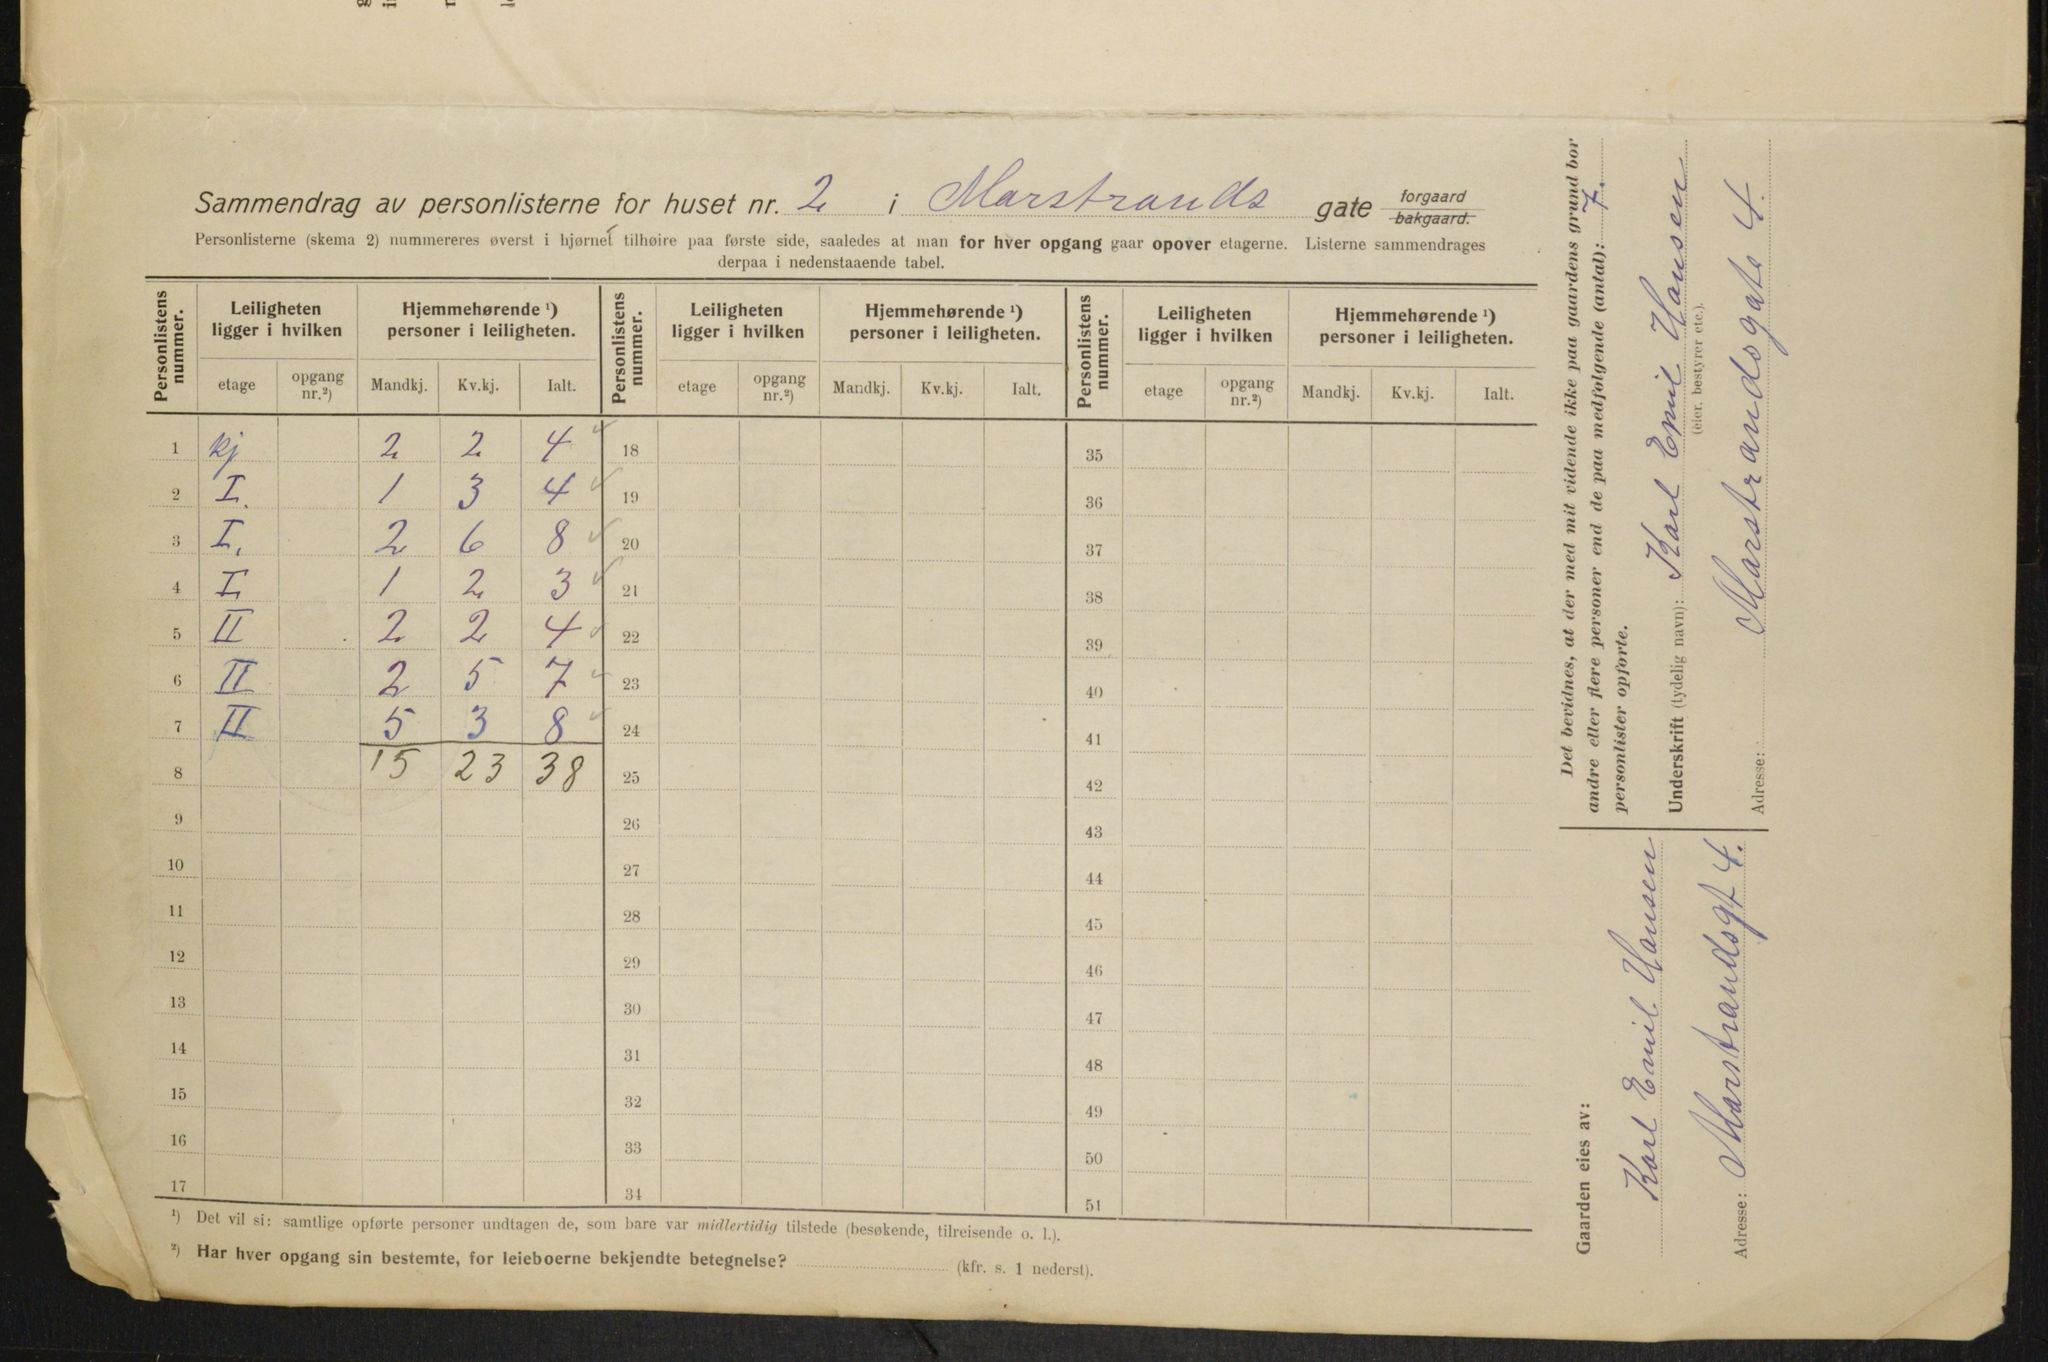 Sammendrag av personlisterne for huset nr. 2 i Marstrands gate forgaard bakgaard.
Personlisterne (skema 2) nummereres øverst i hjørnet tilhøire paa første side, saaledes at man for hver opgang gaar opover etagerne. Listerne sammendrages
derpaa i nedenstaaende tabel.
Personlistens nummer. Leiligheten ligger i hvilken Hjemmehørende ¹) personer i leiligheten. Personlistens nummer. Leiligheten ligger i hvilken Hjemmehørende ¹) personer i leiligheten. Personlistens nummer. Leiligheten ligger i hvilken Hjemmehørende ¹) personer i leiligheten.
etage opgang nr.²) Mandkj. Kv.kj. Ialt. etage opgang nr.²) Mandkj. Kv.kj. Ialt. etage opgang nr.²) Mandkj. Kv.kj. Ialt.
1 kj 2 2 4 18 35
2 I. 1 3 4 19 36
3 I. 2 6 8 20 37
4 I. 1 2 3 21 38
5 II 2 2 4 22 39
6 II 2 5 7 23 40
7 II 5 3 8 24 41
8 15 23 38 25 42
9 26 43
10 27 44
11 28 45
12 29 46
13 30 47
14 31 48
15 32 49
16 33 50
17 34 51
¹) Det vil si: samtlige opførte personer undtagen de, som bare var midlertidig tilstede (besøkende, tilreisende o. l.).
²) Har hver opgang sin bestemte, for leieboerne bekjendte betegnelse? (kfr. s. 1 nederst).
Det bevidnes, at der med mit vidende ikke paa gaardens grund bor
andre eller flere personer end de paa medfølgende (antal): 7.
personlister opførte.
Underskrift (tydelig navn): Karl Emil Hansen
(eier, bestyrer etc.).
Adresse: Marstrandsgate 4.
Gaarden eies av:
Karl Emil Hansen
Adresse: Marstrandsgt 4.